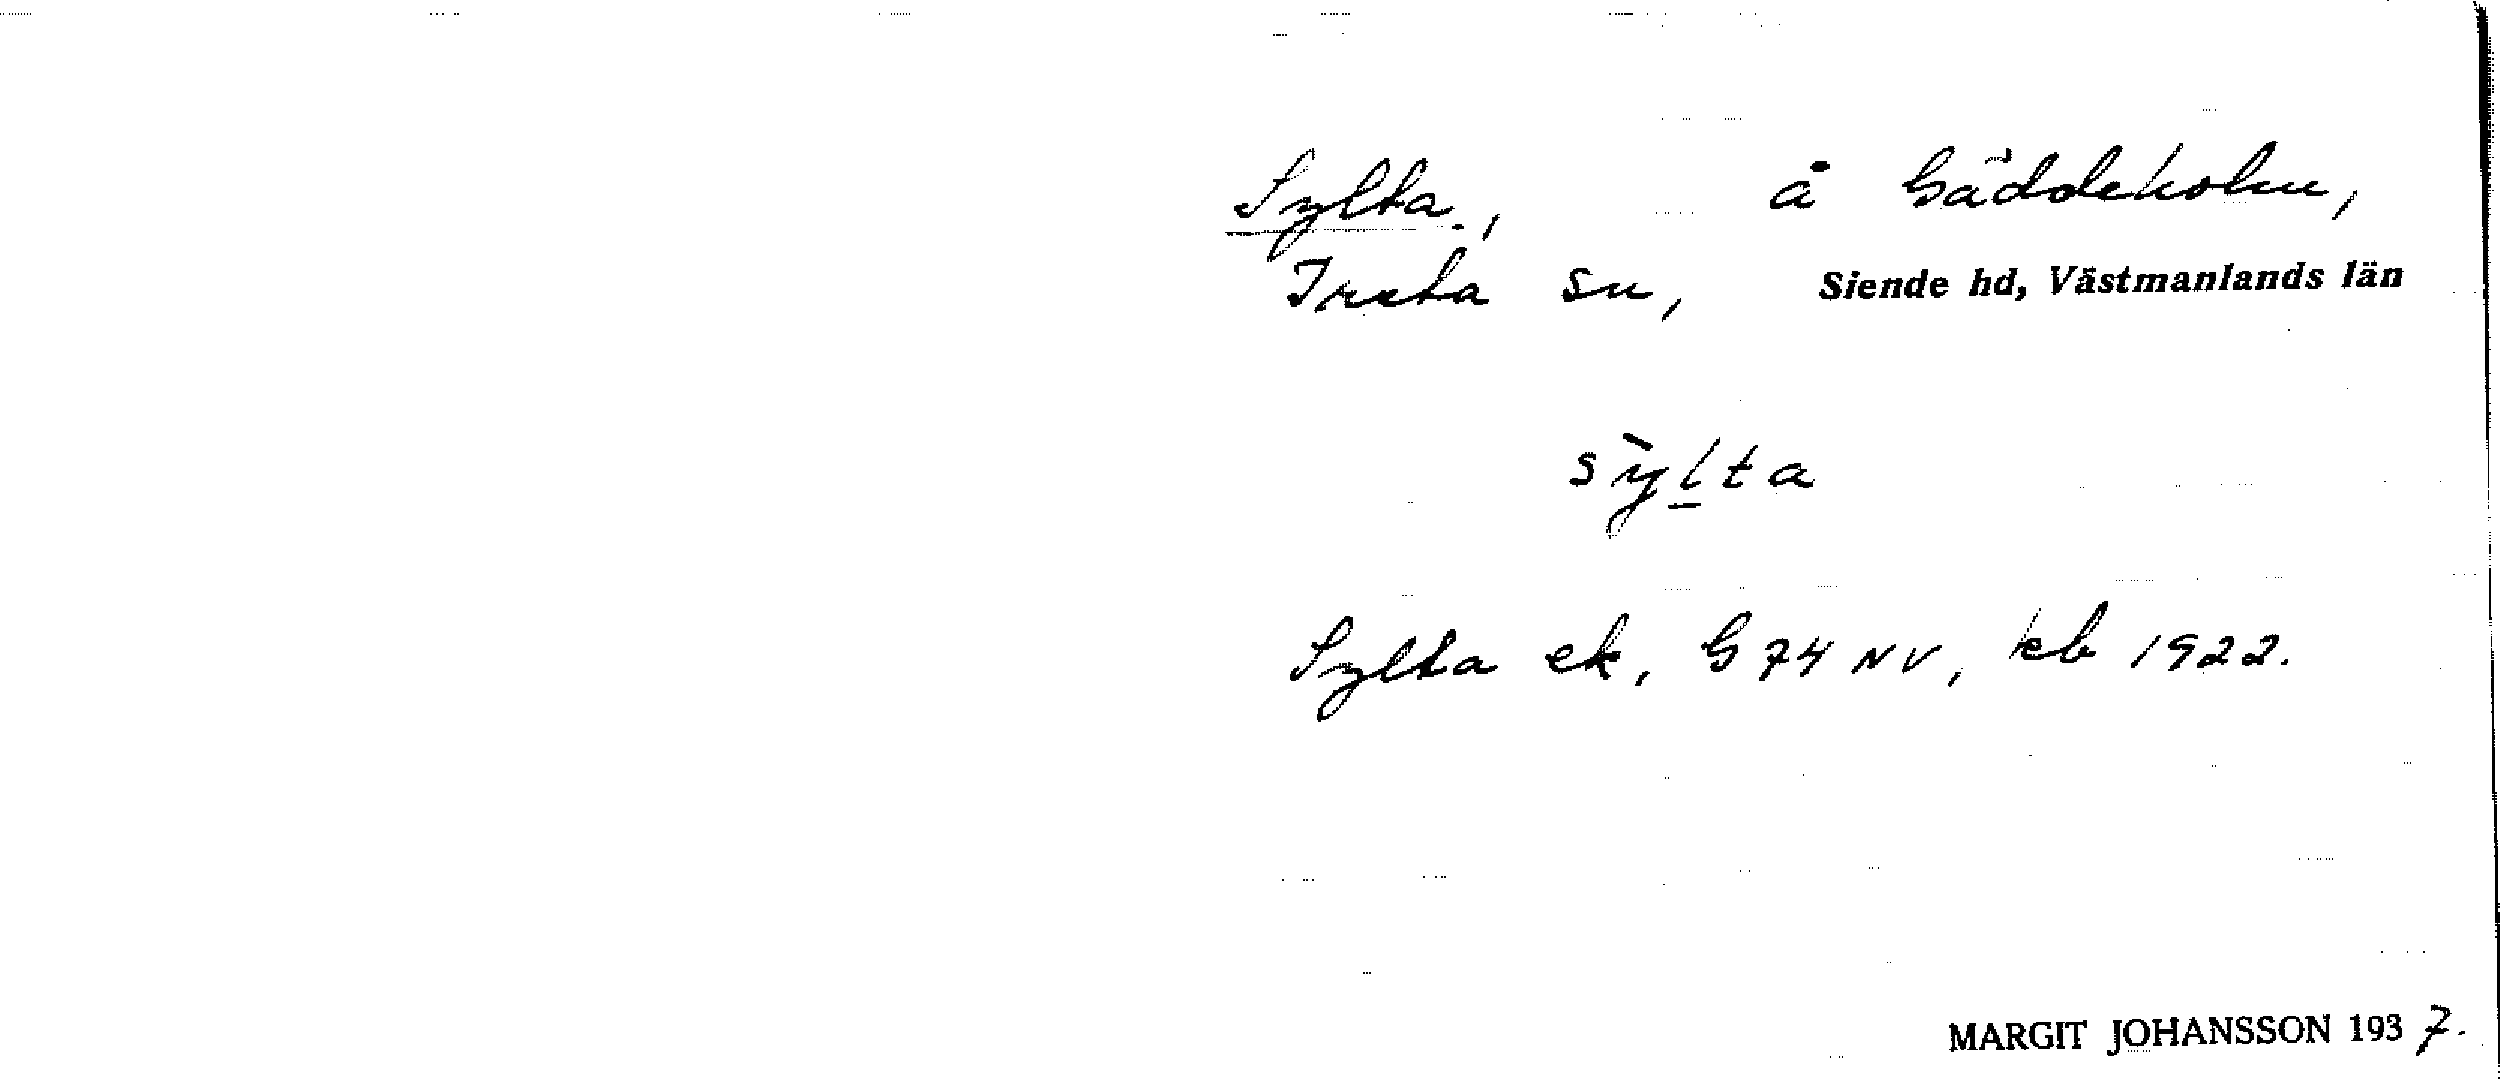 Sylta, å Gäddeholm,
Irsta sn, Siende hd, Västmanlands län
sỳl̲ta
Sylta ek, G 74 NV, kb 1922.
MARGIT JOHANSSON 1937.